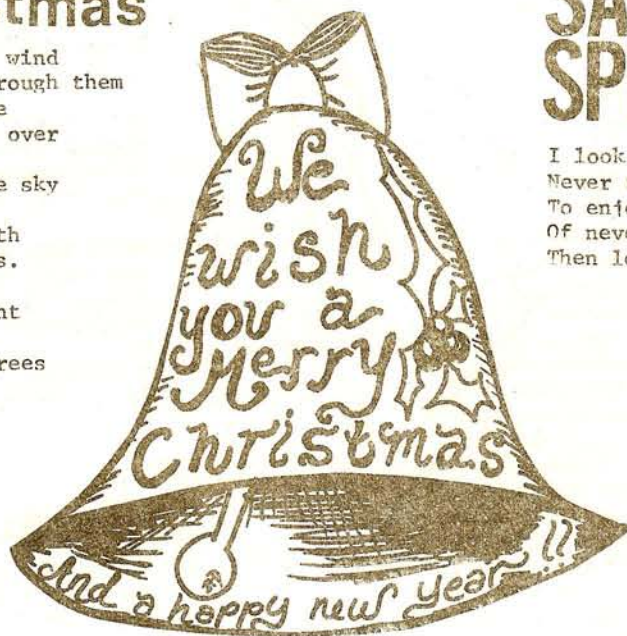 tmas
wind
rough them
e
over
e sky
th
s.
nt
rees
We
wish
you a
Merry
Christmas
And a happy new year !!
SA
SP
I look
Never
To enj
Of neve
Then l